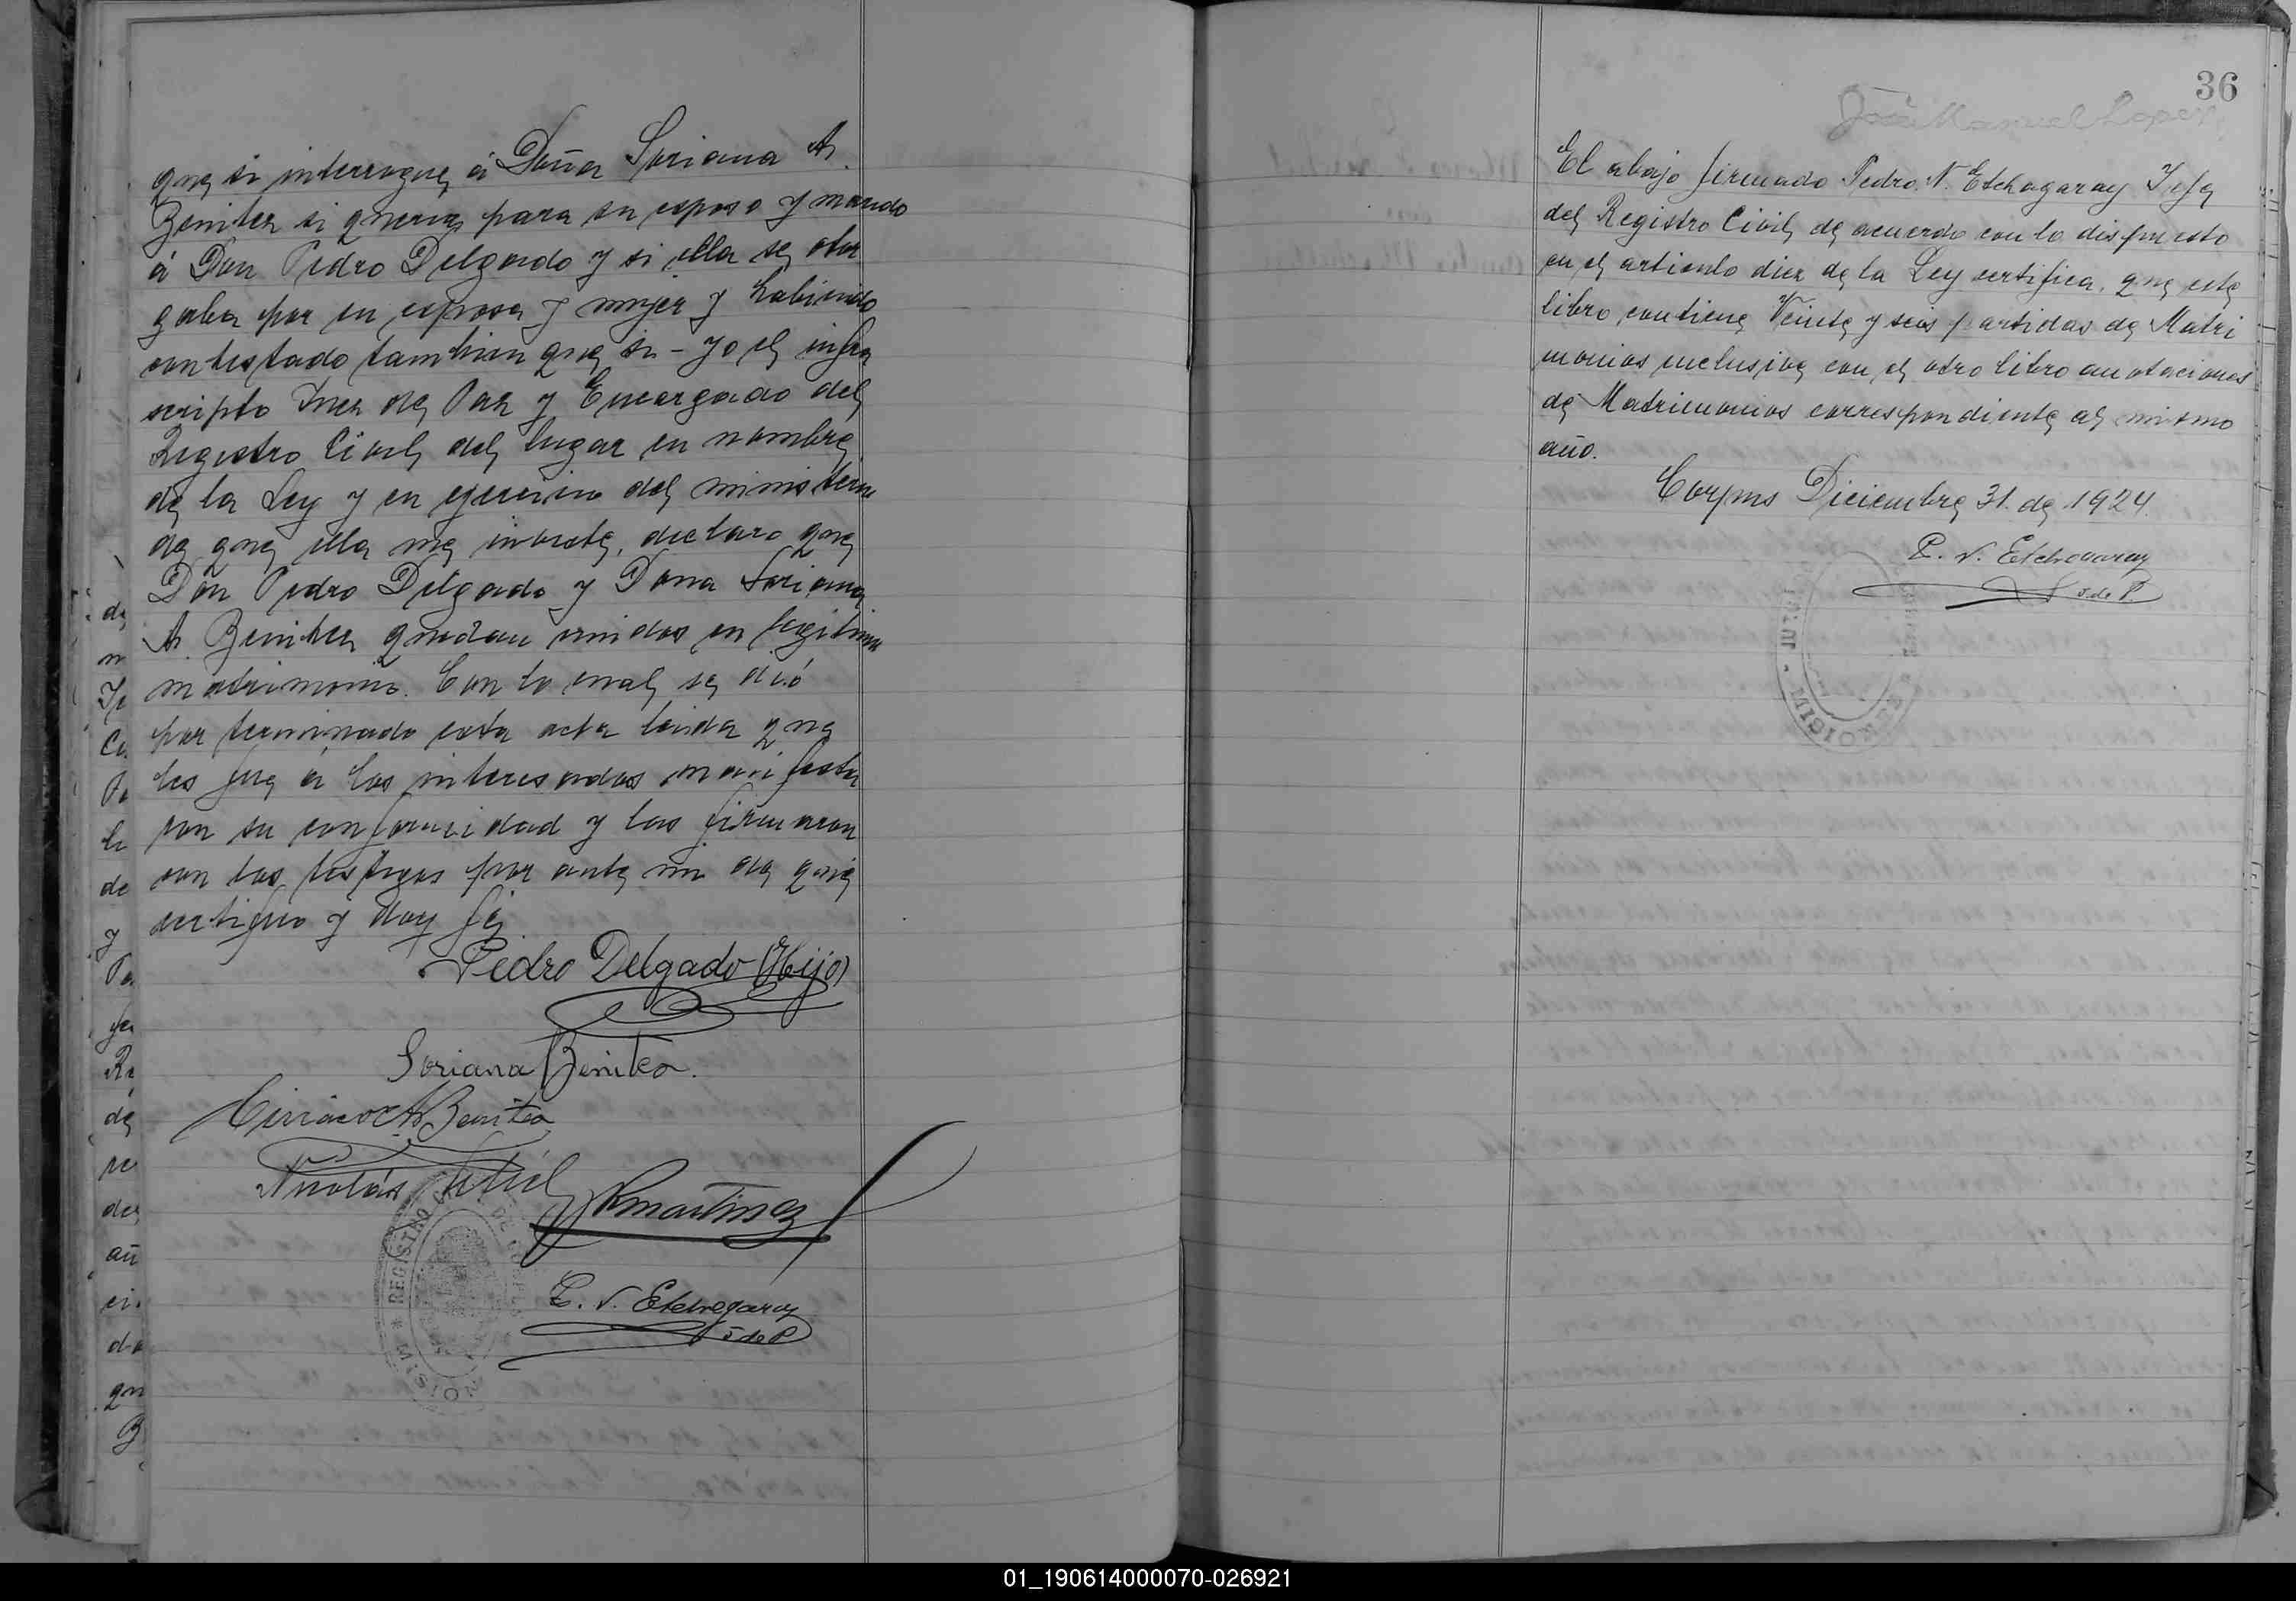 que si interrogue á Doña Soriana A.
Benitez si queria para su esposo y marido
á Don Pedro Delgado y si ella se otor
gaba por su esposa y mujer y habiendo
contestado tambien que si - yo el infra
scripto Juez de Paz y Encargado del
Registro Civil del lugar en nombre
de la Ley y en ejercicio del ministerio
de que ella me inviste, declaro que
Don Pedro Delgado y Dona Soriana
A. Benitez quedan unidos en legitimo
matrimonio. Con lo cual se dió
por terminado esta acta leida que
les fue á los interesados manifesta
ron su conformidad y las firmaron
con los testigos por ante mi de que
certifico y doy fe
Pedro Delgado (Hijo)
Soriana Benitez.
Ciriaco A Benitez
Nicolás
Martinez
REGISTRO
MISION
P. N. Etchegaray
J de P
de
n
Ju
Ca
Pa
le
de
y
Pa
ya
Re
de
re
des
añ
ci
do
qu
B
36
José Manuel Lopez
El abajo firmado Pedro N. Etchegaray Jefe
del Registro Civil, de acuerdo con lo dispuesto
en el articulo diez de la Ley sertifica, que este
libro contiene Veinte y seis partidas de Matri
monios inclusive con el otro libro anotaciones
de Matrimonios correspondiente al mismo
año.
Corpus Diciembre 31. de 1924.
P. N. Etchegaray
J. de P.
MISIONES
01_190614000070-026921